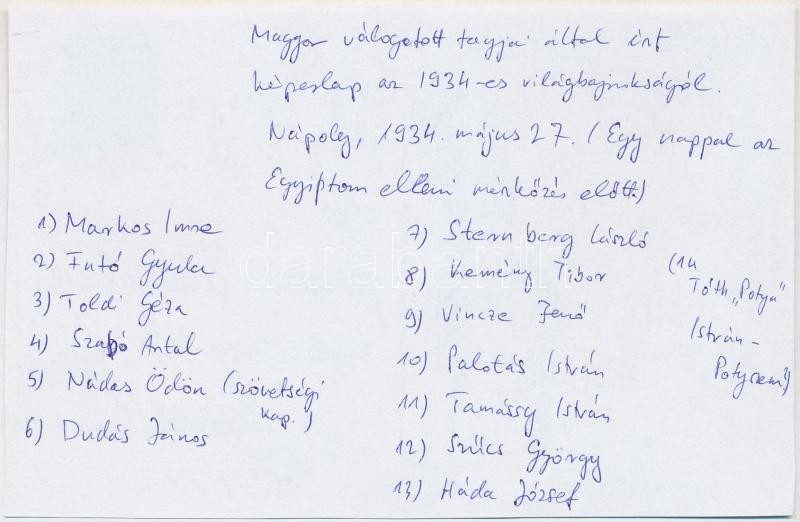 Magyar válogatott tagjai által írt
képeslap az 1934-es világbajnokságról.
Nápoly, 1934. május 27. (Egy nappal az
Egyiptom elleni mérkőzés előtt.)
1) Markos Imre
2) Futó Gyula
3) Toldi Géza
4) Szabó Antal
5) Nádas Ödön (szövetségi
kap.)
6) Dudás János
7) Sternberg László
8) Kemény Tibor
9) Vincze Jenő
10) Palotás István
11) Tamássy István
12) Szűcs György
13) Háda József
(14
Tóth „Potya"
István -
darabanth